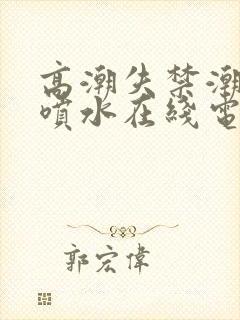 高潮失禁潮
噴水在綫電
郭宏偉